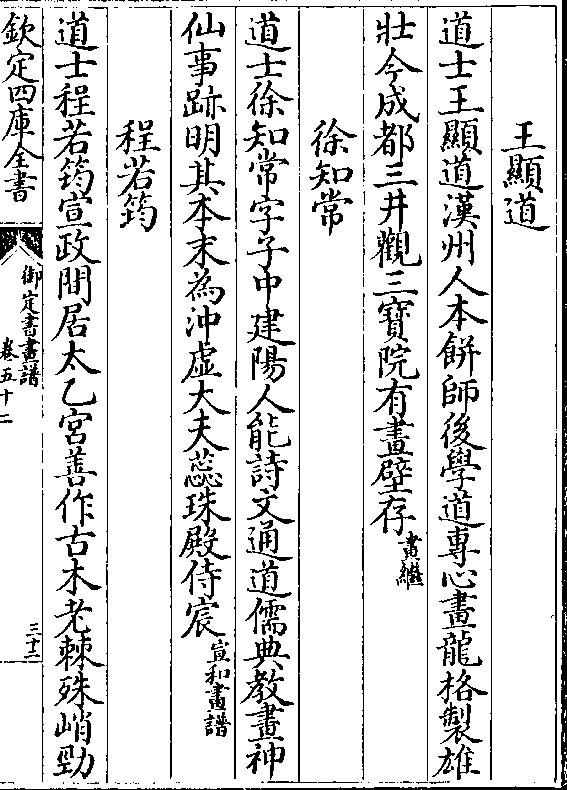 王顯道
道士王顯道漢州人本餅師後學道專心畫龍格製雄
壯今成都三井觀三寶院有畫壁存畫繼
徐知常
道士徐知常字子中建陽人能詩文通道儒典教畫神
仙事跡明其本末為沖虛大夫蕊珠殿侍宸宣和畫譜
程若筠
道士程若筠宣政間居太乙宮善作古木老棘殊峭勁
欽定四庫全書
御定書畫譜
卷五十二
三十二